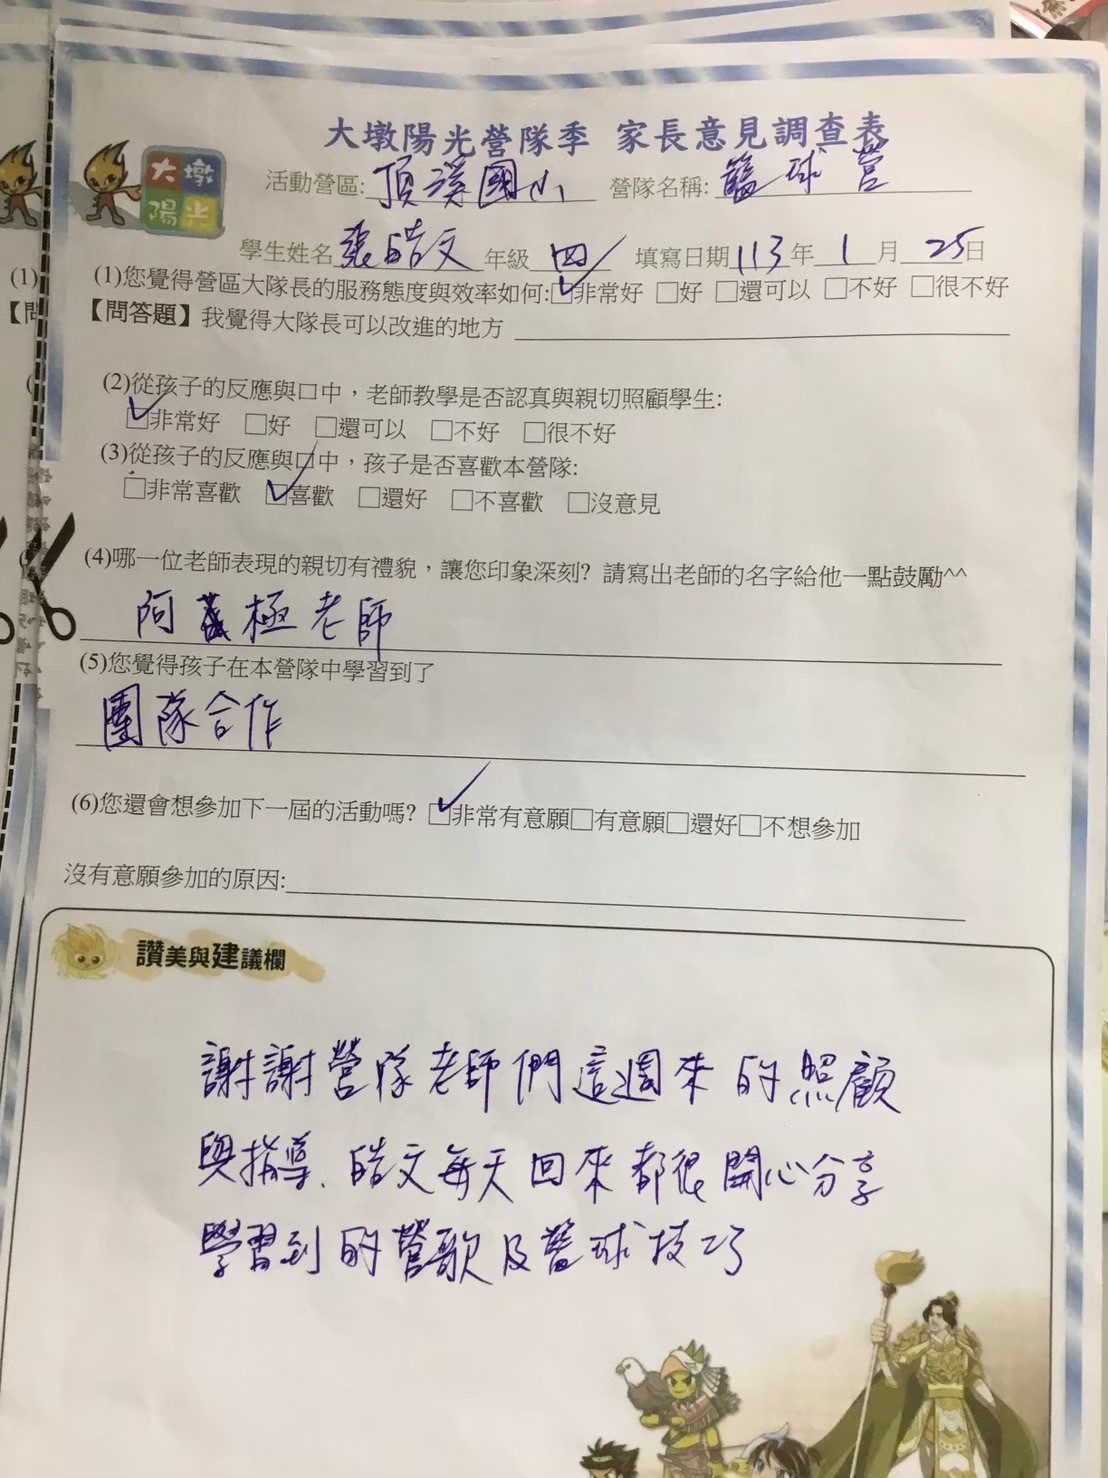 大墩陽光營隊季 家長意見調查表
大墩
陽光
活動營區:頂溪國小 營隊名稱:籃球營
學生姓名 張皓文 年級 四 填寫日期113年1月25日
(1)您覺得營區大隊長的服務態度與效率如何:☑非常好 □好 □還可以 □不好 □很不好
【問答題】我覺得大隊長可以改進的地方
(2)從孩子的反應與口中，老師教學是否認真與親切照顧學生:
☑非常好 □好 □還可以 □不好 □很不好
(3)從孩子的反應與口中，孩子是否喜歡本營隊:
□非常喜歡 ☑喜歡 □還好 □不喜歡 □沒意見
(4)哪一位老師表現的親切有禮貌，讓您印象深刻? 請寫出老師的名字給他一點鼓勵^^
阿極老師
(5)您覺得孩子在本營隊中學習到了
團隊合作
(6)您還會想參加下一屆的活動嗎? ☑非常有意願□有意願□還好□不想參加
沒有意願參加的原因:
讚美與建議欄
謝謝營隊老師們這週來的照顧
與指導、皓文每天回來都很開心分享
學習到的營歌及籃球技巧
(1)
【問